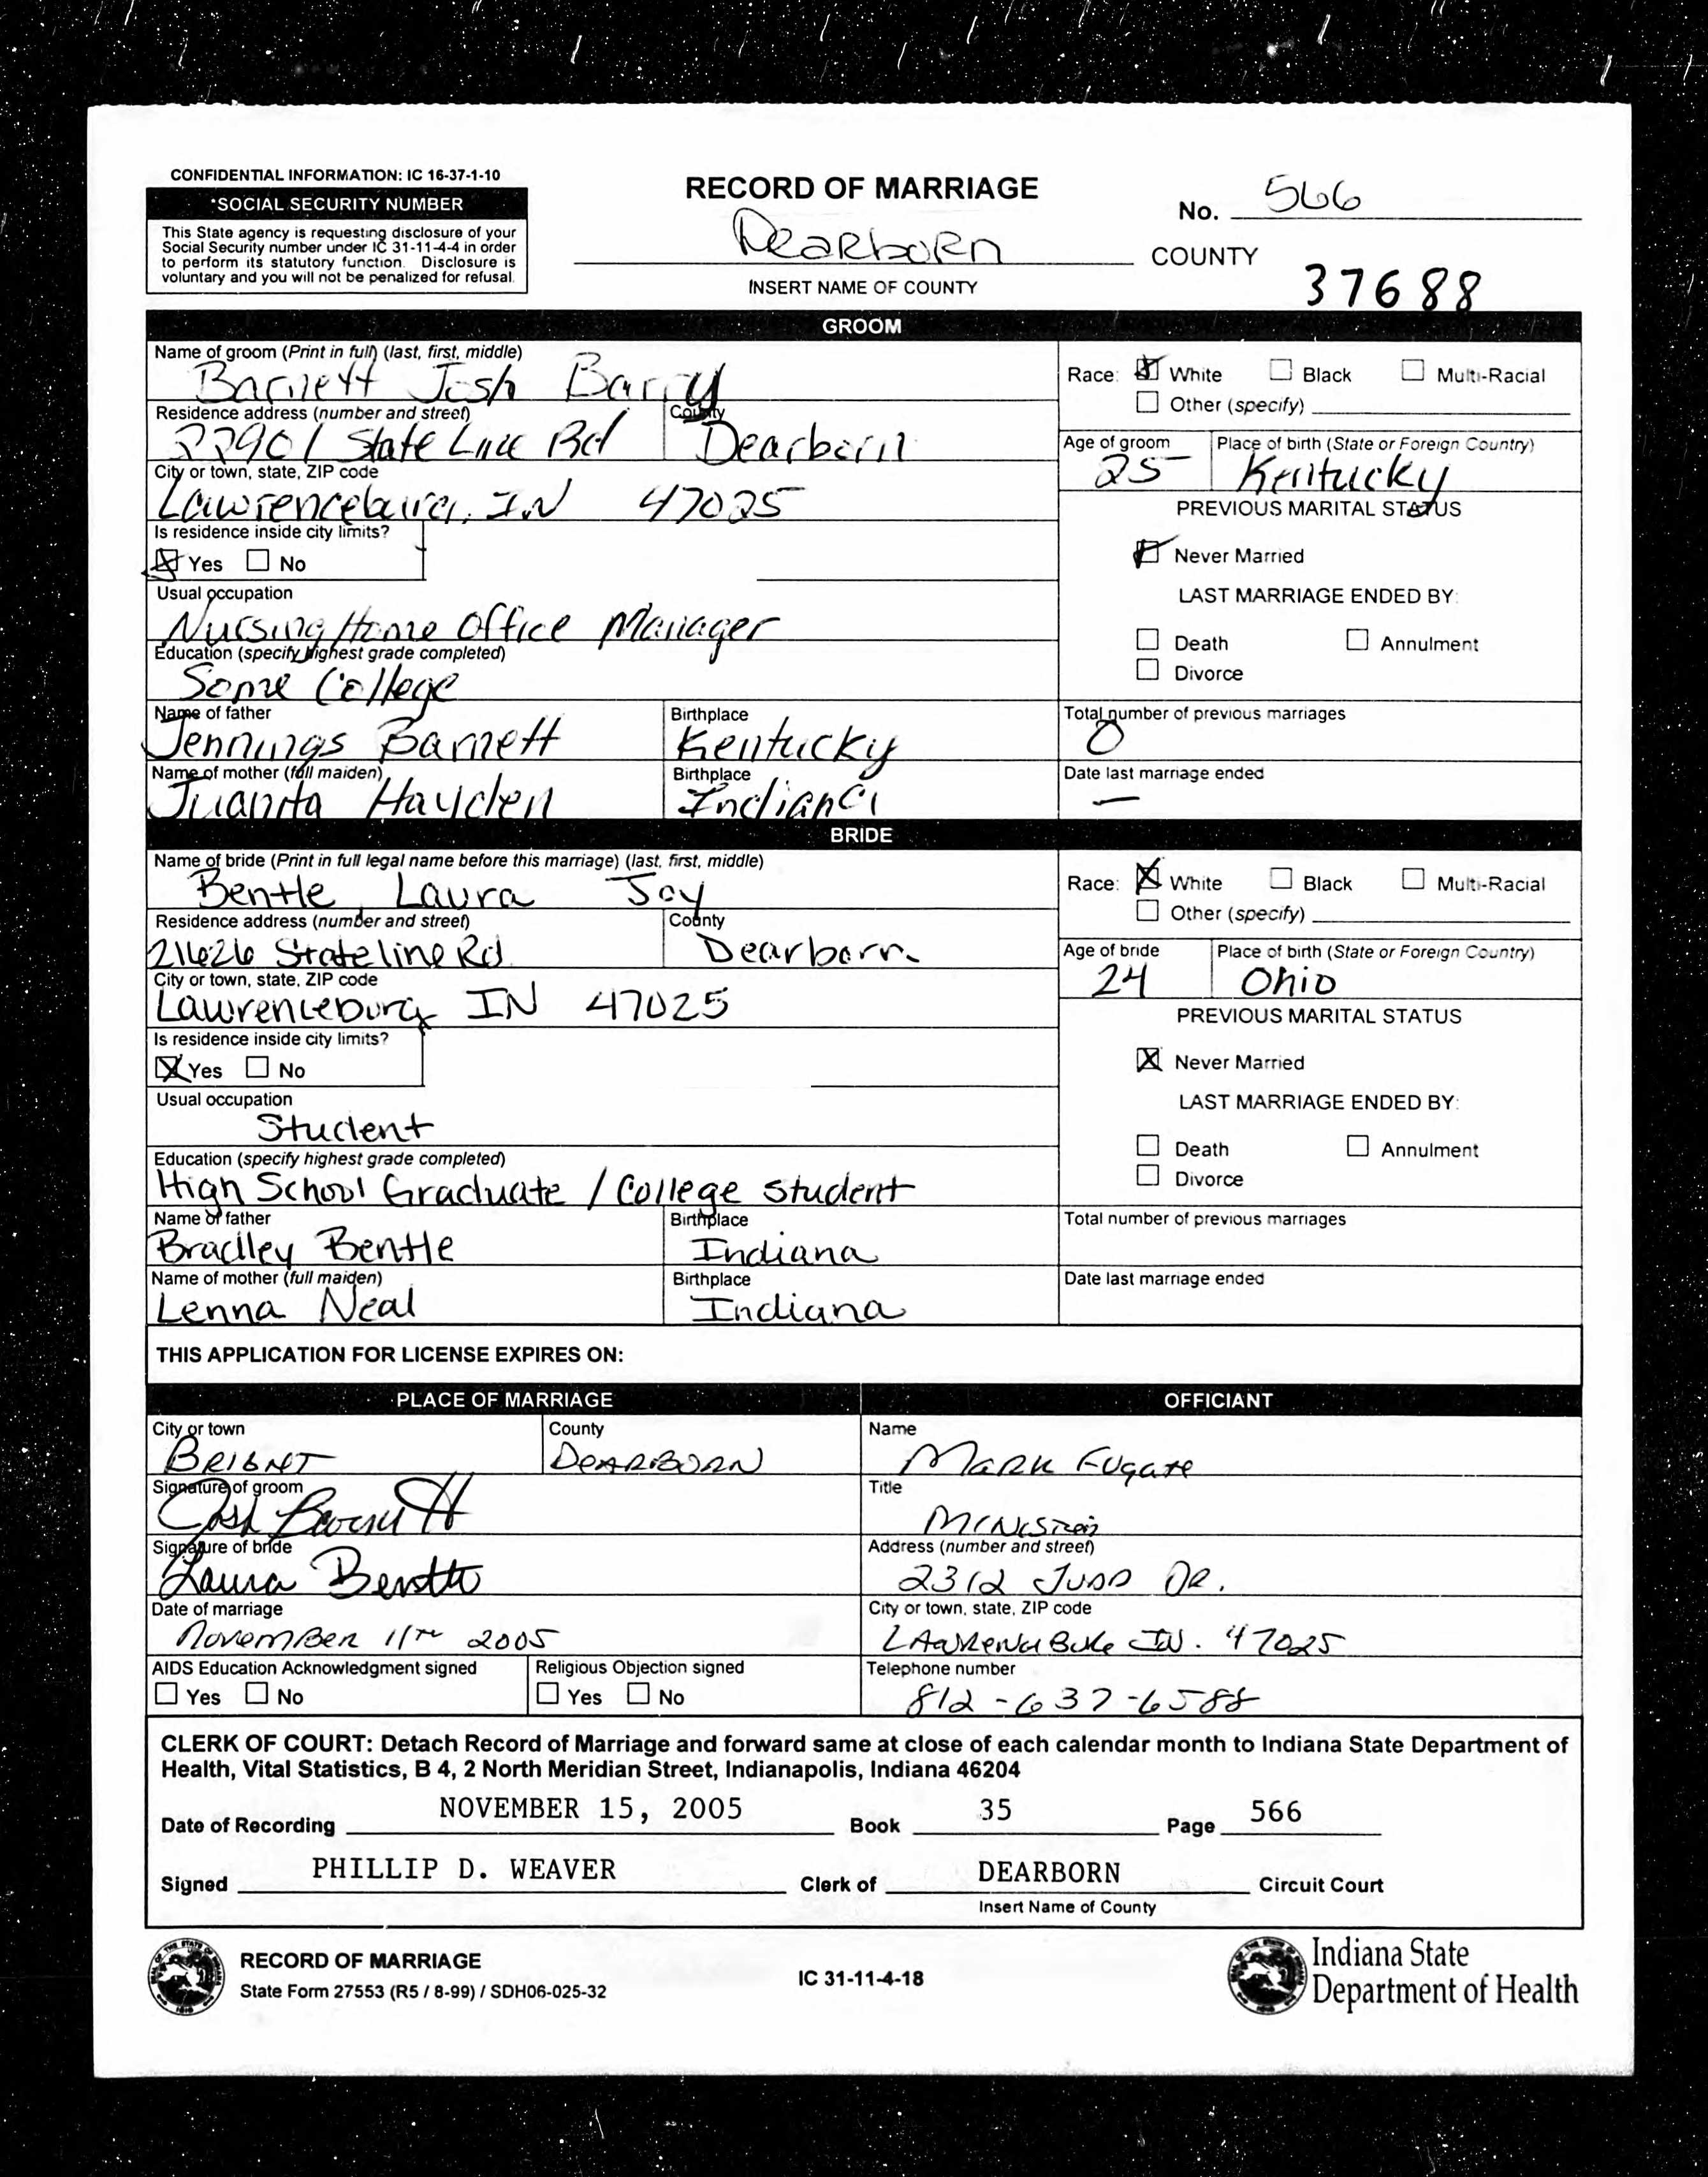 CONFIDENTIAL INFORMATION: IC 16-37-1-10
*SOCIAL SECURITY NUMBER
This State agency is requesting disclosure of your
Social Security number under IC 31-11-4-4 in order
to perform its statutory function. Disclosure is
voluntary and you will not be penalized for refusal.
RECORD OF MARRIAGE
No. 566
Dearborn COUNTY
INSERT NAME OF COUNTY
37688
GROOM
Name of groom (Print in full) (last, first, middle)
Barnett Josh Barry
Race: White Black Multi-Racial
Other (specify)
Residence address (number and street) County
22901 State Line Rd Dearborn
Age of groom Place of birth (State or Foreign Country)
25 Kentucky
City or town, state, ZIP code
Lawrenceburg, IN 47025
PREVIOUS MARITAL STATUS
Is residence inside city limits?
Yes No
Never Married
Usual occupation
Nursing Home Office Manager
LAST MARRIAGE ENDED BY:
Death Annulment
Divorce
Education (specify highest grade completed)
Some College
Name of father Birthplace Total number of previous marriages
Jennings Barnett Kentucky 0
Name of mother (full maiden) Birthplace Date last marriage ended
Juanita Hayden Indiana —
BRIDE
Name of bride (Print in full legal name before this marriage) (last, first, middle)
Bentle, Laura Joy
Race: White Black Multi-Racial
Other (specify)
Residence address (number and street) County
21626 Stateline Rd Dearborn
Age of bride Place of birth (State or Foreign Country)
24 Ohio
City or town, state, ZIP code
Lawrenceburg IN 47025
PREVIOUS MARITAL STATUS
Is residence inside city limits?
Yes No
Never Married
Usual occupation
Student
LAST MARRIAGE ENDED BY:
Death Annulment
Divorce
Education (specify highest grade completed)
High School Graduate / College student
Name of father Birthplace Total number of previous marriages
Bradley Bentle Indiana
Name of mother (full maiden) Birthplace Date last marriage ended
Lenna Neal Indiana
THIS APPLICATION FOR LICENSE EXPIRES ON:
PLACE OF MARRIAGE OFFICIANT
City or town County Name
BRIGHT DEARBORN MARK FUGATE
Signature of groom Title
Josh Barnett MINISTER
Signature of bride Address (number and street)
Laura Bentle 2312 JUDD DR.
Date of marriage City or town, state, ZIP code
NOVEMBER 11TH 2005 LAWRENCEBURG IN. 47025
AIDS Education Acknowledgment signed Religious Objection signed Telephone number
Yes No Yes No 812-637-6588
CLERK OF COURT: Detach Record of Marriage and forward same at close of each calendar month to Indiana State Department of
Health, Vital Statistics, B 4, 2 North Meridian Street, Indianapolis, Indiana 46204
Date of Recording NOVEMBER 15, 2005 Book 35 Page 566
Signed PHILLIP D. WEAVER Clerk of DEARBORN Circuit Court
Insert Name of County
RECORD OF MARRIAGE
State Form 27553 (R5 / 8-99) / SDH06-025-32
IC 31-11-4-18
Indiana State
Department of Health